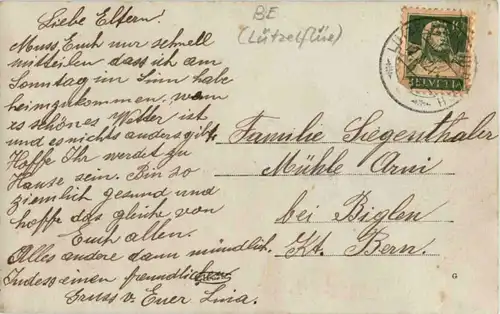 Liebe Eltern.
Muss Euch nur schnell
mitteilen dass ich am
Sonntag im Sinn habe
heimzukommen, wenn
es schönes Wetter ist
und es nichts anders gibt.
Hoffe Ihr werdet zu
Hause sein. Bin so
ziemlich gesund und
hoffe das gleiche von
Euch allen.
Alles andere dann mündlich.
Indes einen freundlichen
Gruss v. Euer Lina.
BE
(Lützelflüe)
HELVETIA
Familie Siegenthaler
Mühle Arni
bei Biglen
Kt. Bern.
G